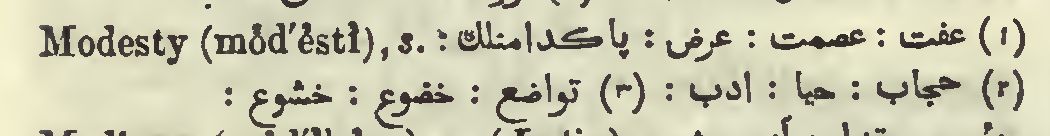 Modesty (mŏd′ĕstĭ), s. : (١) عفت : عصمت : عرض : پاکدامنلك
(٢) حجاب : حيا : ادب : (٣) تواضع : خضوع : خشوع :